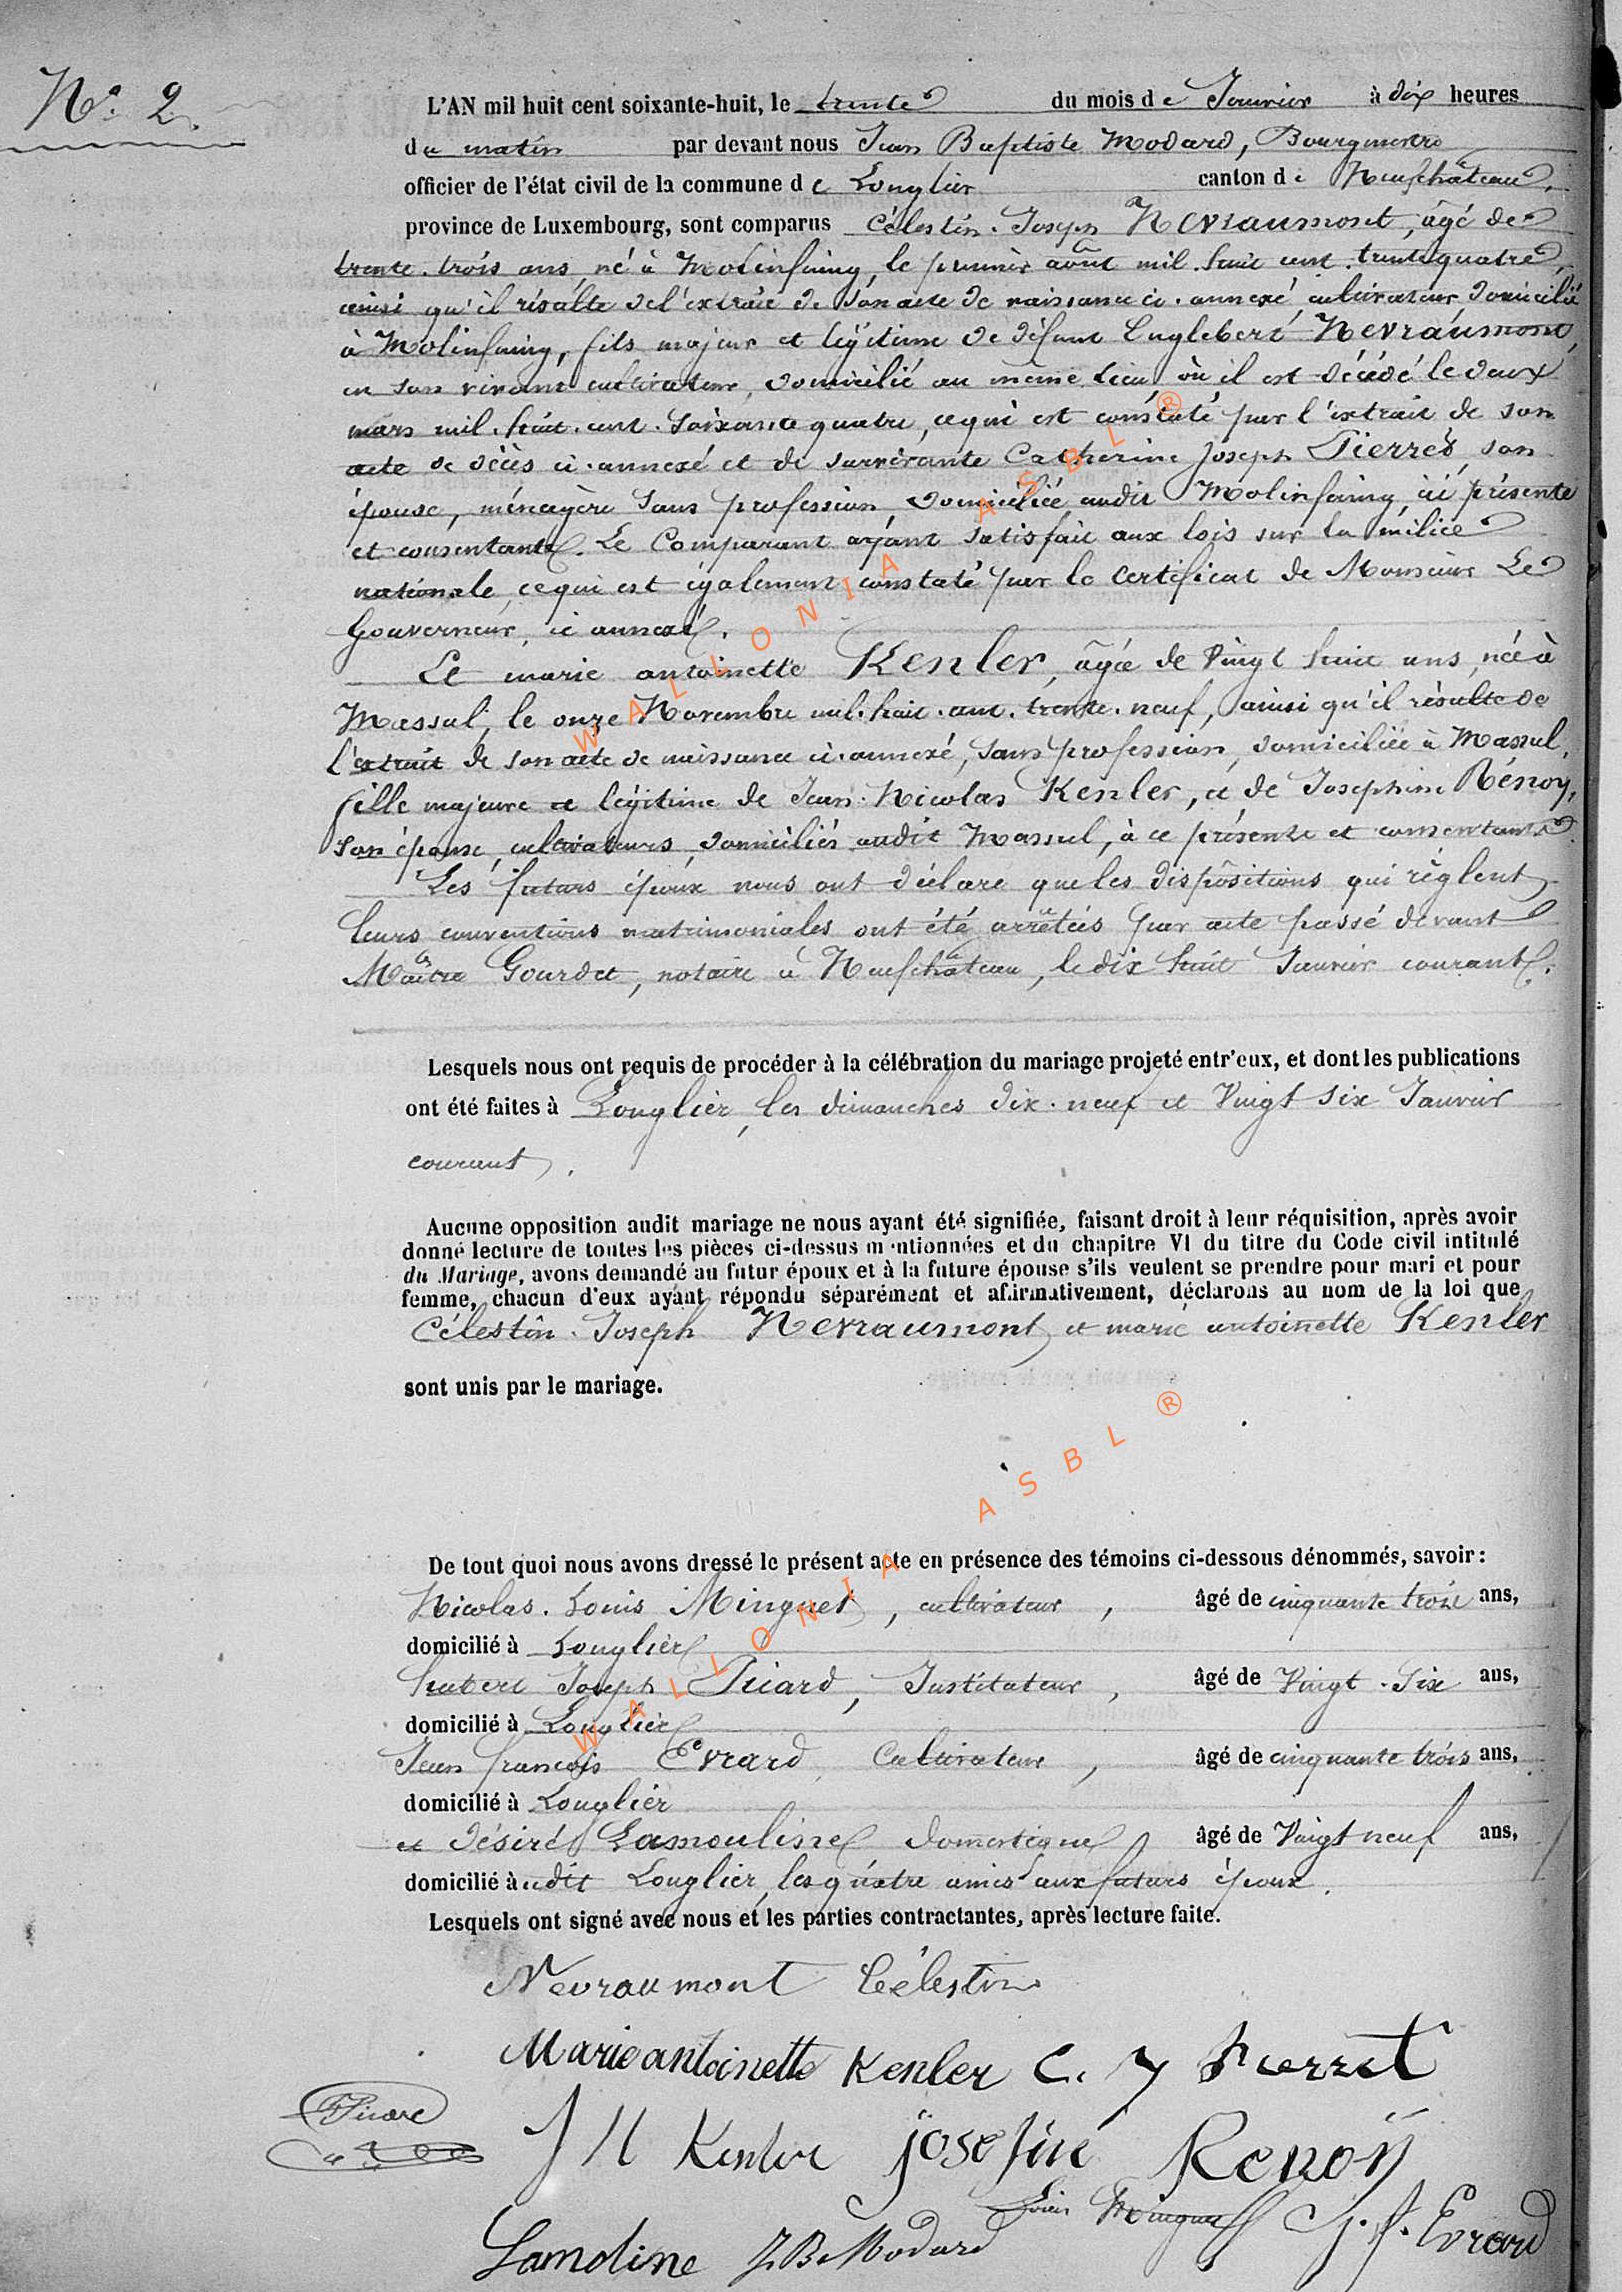 N° 2.
L'AN mil huit cent soixante-huit, le trente du mois de Janvier à dix heures
du matin par devant nous Jean Baptiste Modard, Bourgmestre
officier de l'état civil de la commune de Longlier canton de Neufchâteau,
province de Luxembourg, sont comparus Célestin Joseph Nevraumont, âgé de
trente-trois ans, né à Molinfaing, le premier août mil-huit cent-trente quatre,
ainsi qu'il résulte de l'extrait de son acte de naissance ci-annexé, cultivateur, domicilié
à Molinfaing, fils majeur et légitime de défunt Englebert Nevraumont,
en son vivant cultivateur, domicilié au même lieu, où il est décédé le deux
mars mil-huit-cent-soixante quatre, ce qui est constaté par l'extrait de son
acte de décès ci-annexé et de survivante Catherine Joseph Pierret, son
épouse, ménagère sans profession, domiciliée audit Molinfaing, ici présente
et consentante. Le Comparant ayant satisfait aux lois sur la milice
nationale, ce qui est également constaté par le certificat de Monsieur Le
Gouverneur, ci annexé.
Et marie antoinette Kenler, âgée de vingt huit ans, née à
Massul, le onze Novembre mil-huit-cent-trente-neuf, ainsi qu'il résulte de
l'extrait de son acte de naissance ci-annexé, sans profession, domiciliée à Massul,
fille majeure et légitime de Jean-Nicolas Kenler, et de Josephine Rénoy,
son épouse, cultivateurs, domiciliés audit Massul, à ce présents et consentants.
Les futurs époux nous ont déclaré que les dispositions qui règlent
leurs conventions matrimoniales ont été arrêtées par acte passé devant
Maître Gourdet, notaire à Neufchâteau, le dix huit Janvier courant.
Lesquels nous ont requis de procéder à la célébration du mariage projeté entr'eux, et dont les publications
ont été faites à Longlier, les dimanches dix-neuf et vingt six Janvier
courant.
Aucune opposition audit mariage ne nous ayant été signifiée, faisant droit à leur réquisition, après avoir
donné lecture de toutes les pièces ci-dessus mentionnées et du chapitre VI du titre du Code civil intitulé
du Mariage, avons demandé au futur époux et à la future épouse s'ils veulent se prendre pour mari et pour
femme, chacun d'eux ayant répondu séparément et affirmativement, déclarons au nom de la loi que
Célestin-Joseph Nevraumont et marie antoinette Kenler
sont unis par le mariage.
De tout quoi nous avons dressé le présent acte en présence des témoins ci-dessous dénommés, savoir :
Nicolas-Louis Minguet, cultivateur, âgé de cinquante trois ans,
domicilié à Longlier
hubert Joseph Picard, Instituteur, âgé de Vingt-Six ans,
domicilié à Longlier
Jean françois Evrard, Cultivateur, âgé de cinquante trois ans,
domicilié à Longlier
et Désiré Lamouline, domestique, âgé de Vingt neuf ans,
domicilié audit Longlier, les quatre amis aux futurs époux.
Lesquels ont signé avec nous et les parties contractantes, après lecture faite.
Nevraumont Célestin
Marie antoinette Kenler C. J Pierret
Picard
J N Kenler josefine Renoÿ
Louis Minguet J. f. Evrard
Lamoline J. B. Modard
WALLONIA ASBL ®
WALLONIA ASBL ®